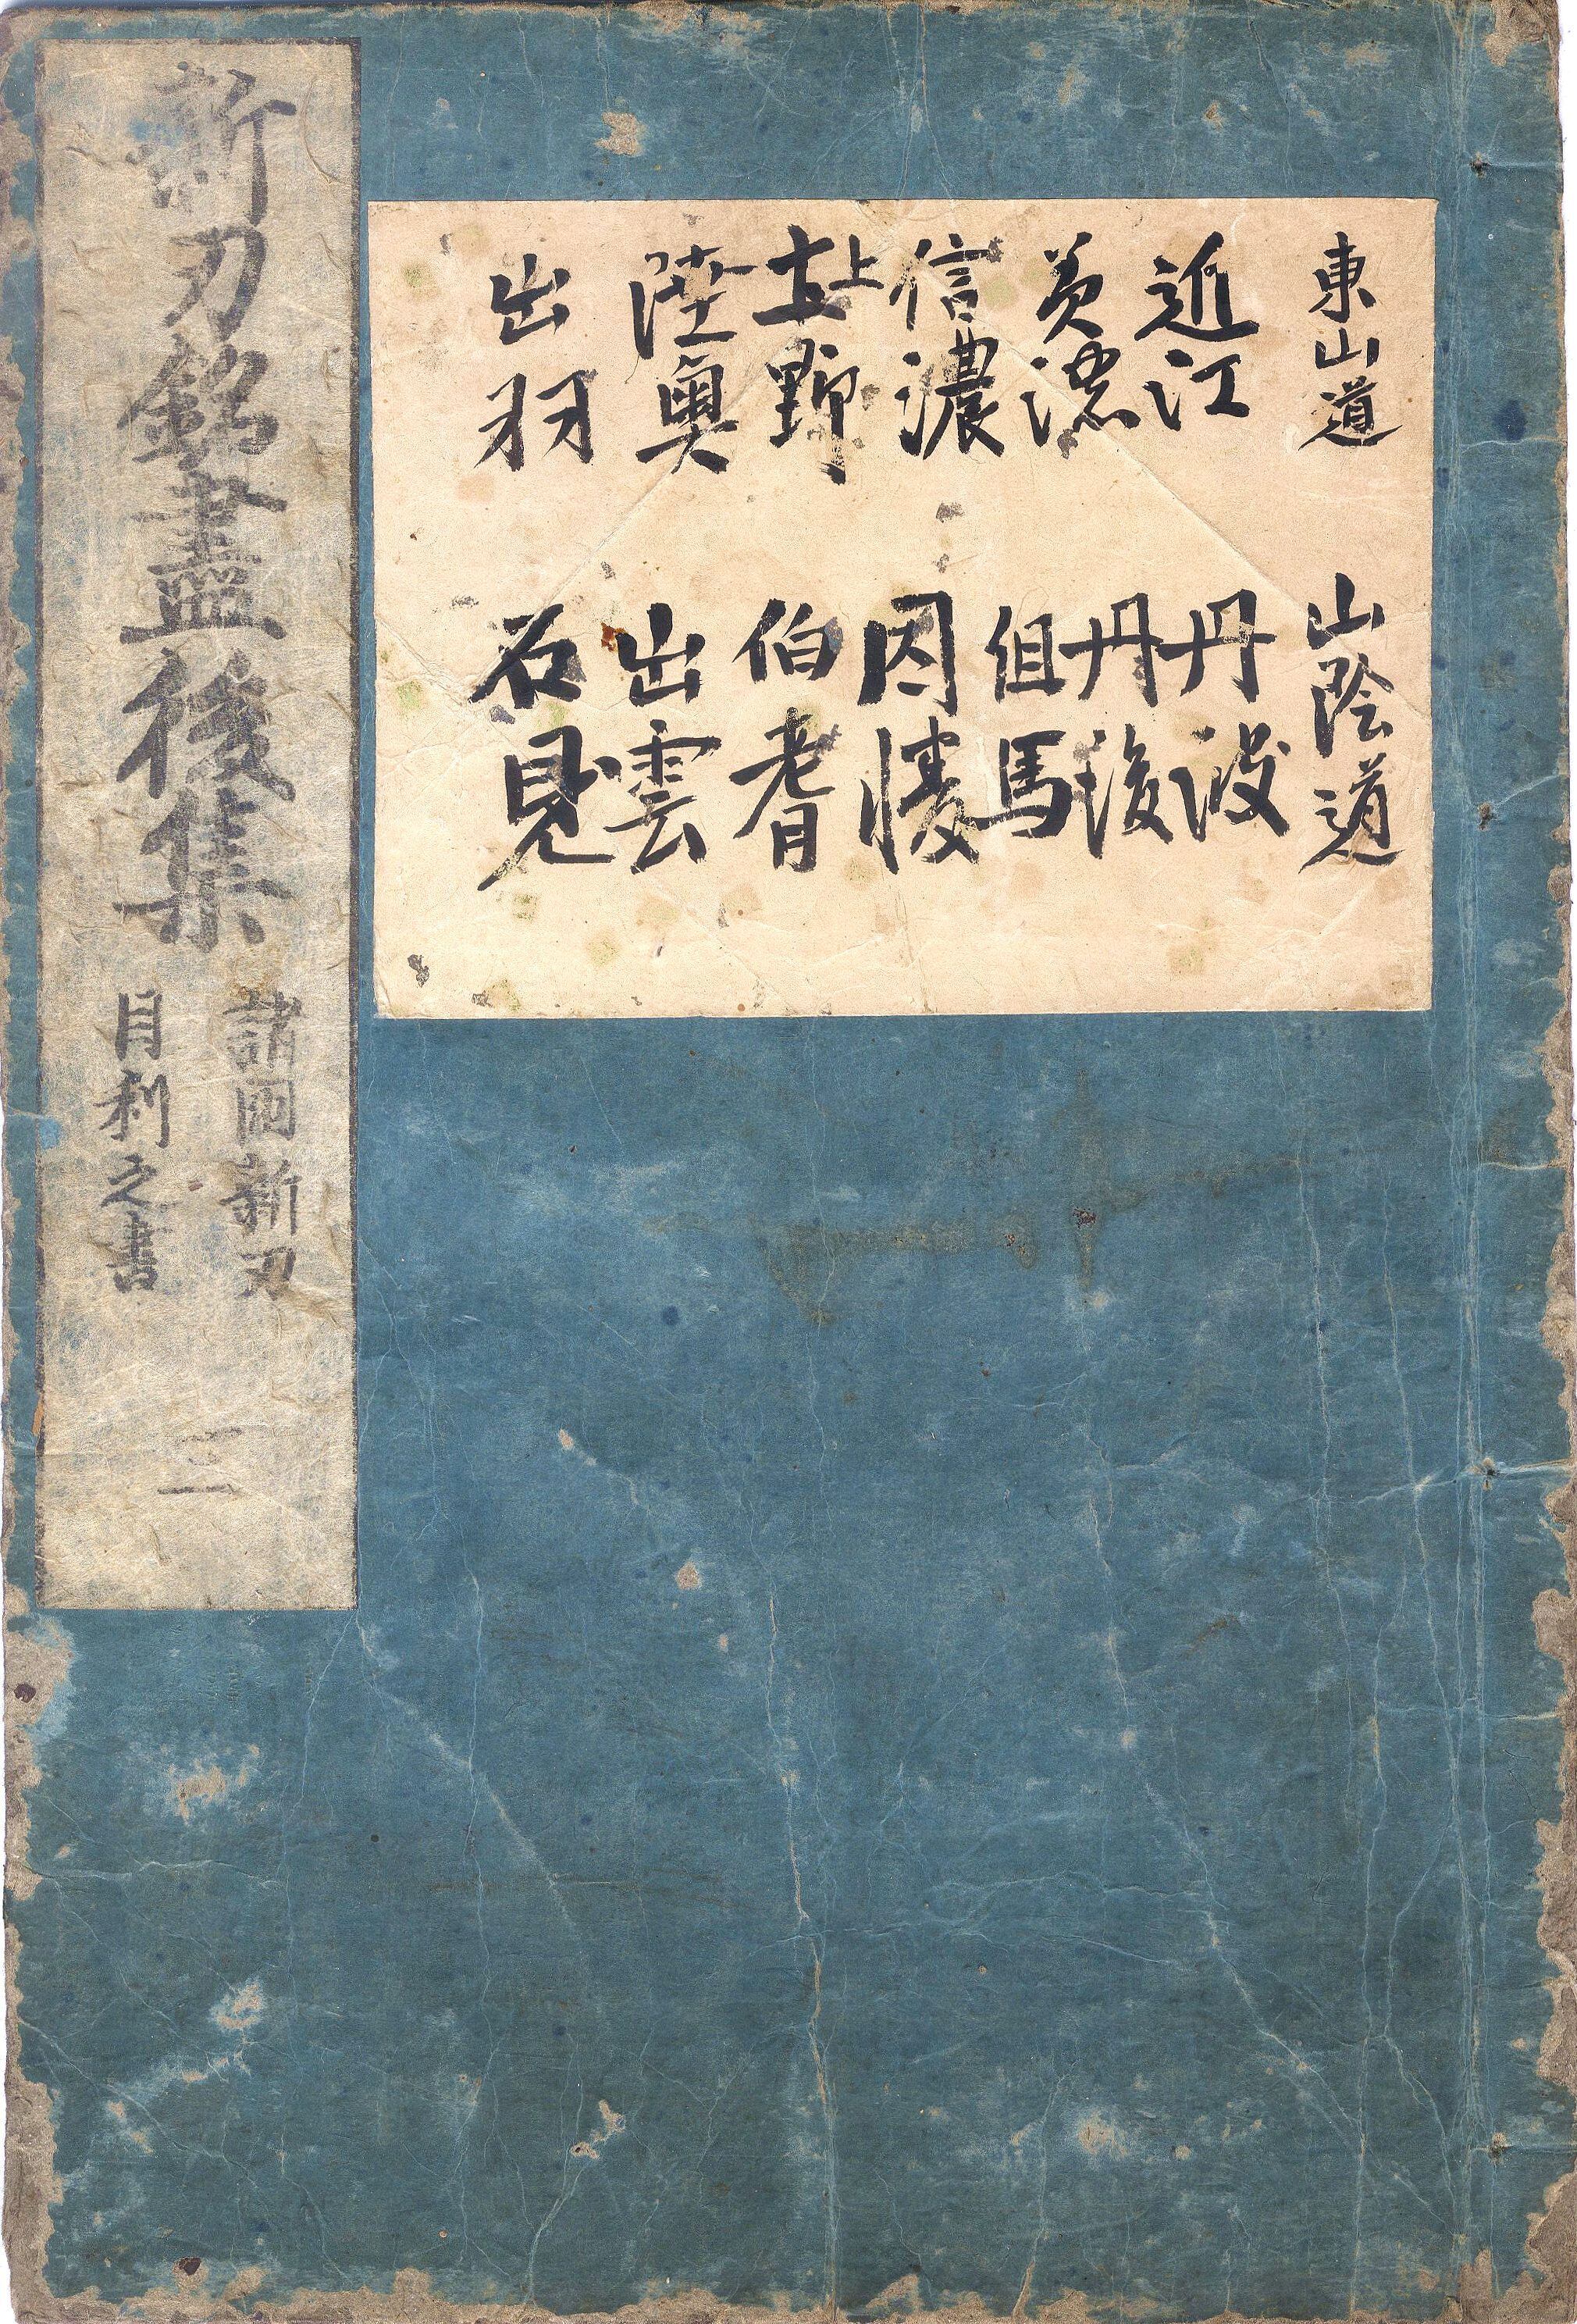 東山道
近江
美濃
信濃
上野
陸奥
出羽
山陰道
丹波
丹後
但馬
因幡
伯耆
出雲
石見
新刃銘盡後集
諸国新刃
目利之書
三